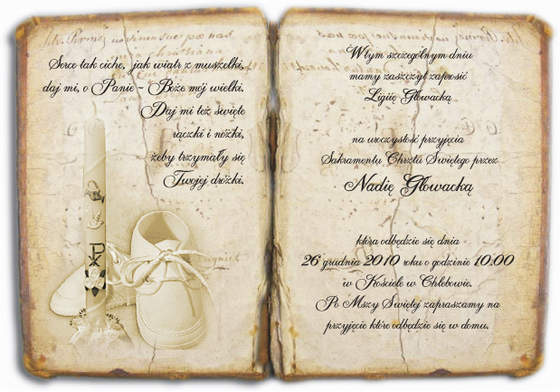 Serce tak ciche, jak wiatr z muszelki,
daj mi, o Panie - Boże mój wielki.
Daj mi też święte
rączki i nóżki,
żeby trzymały się
Twojej dróżki.
W tym szczególnym dniu
mamy zaszczyt zaprosić
Ligię Głowacką
na uroczystość przyjęcia
Sakramentu Chrztu Świętego przez
Nadię Głowacką
która odbędzie się dnia
26 grudnia 2010 roku o godzinie 10:00
w Kościele w Chlebowie.
Po Mszy Świętej zapraszamy na
przyjęcie które odbędzie się w domu.